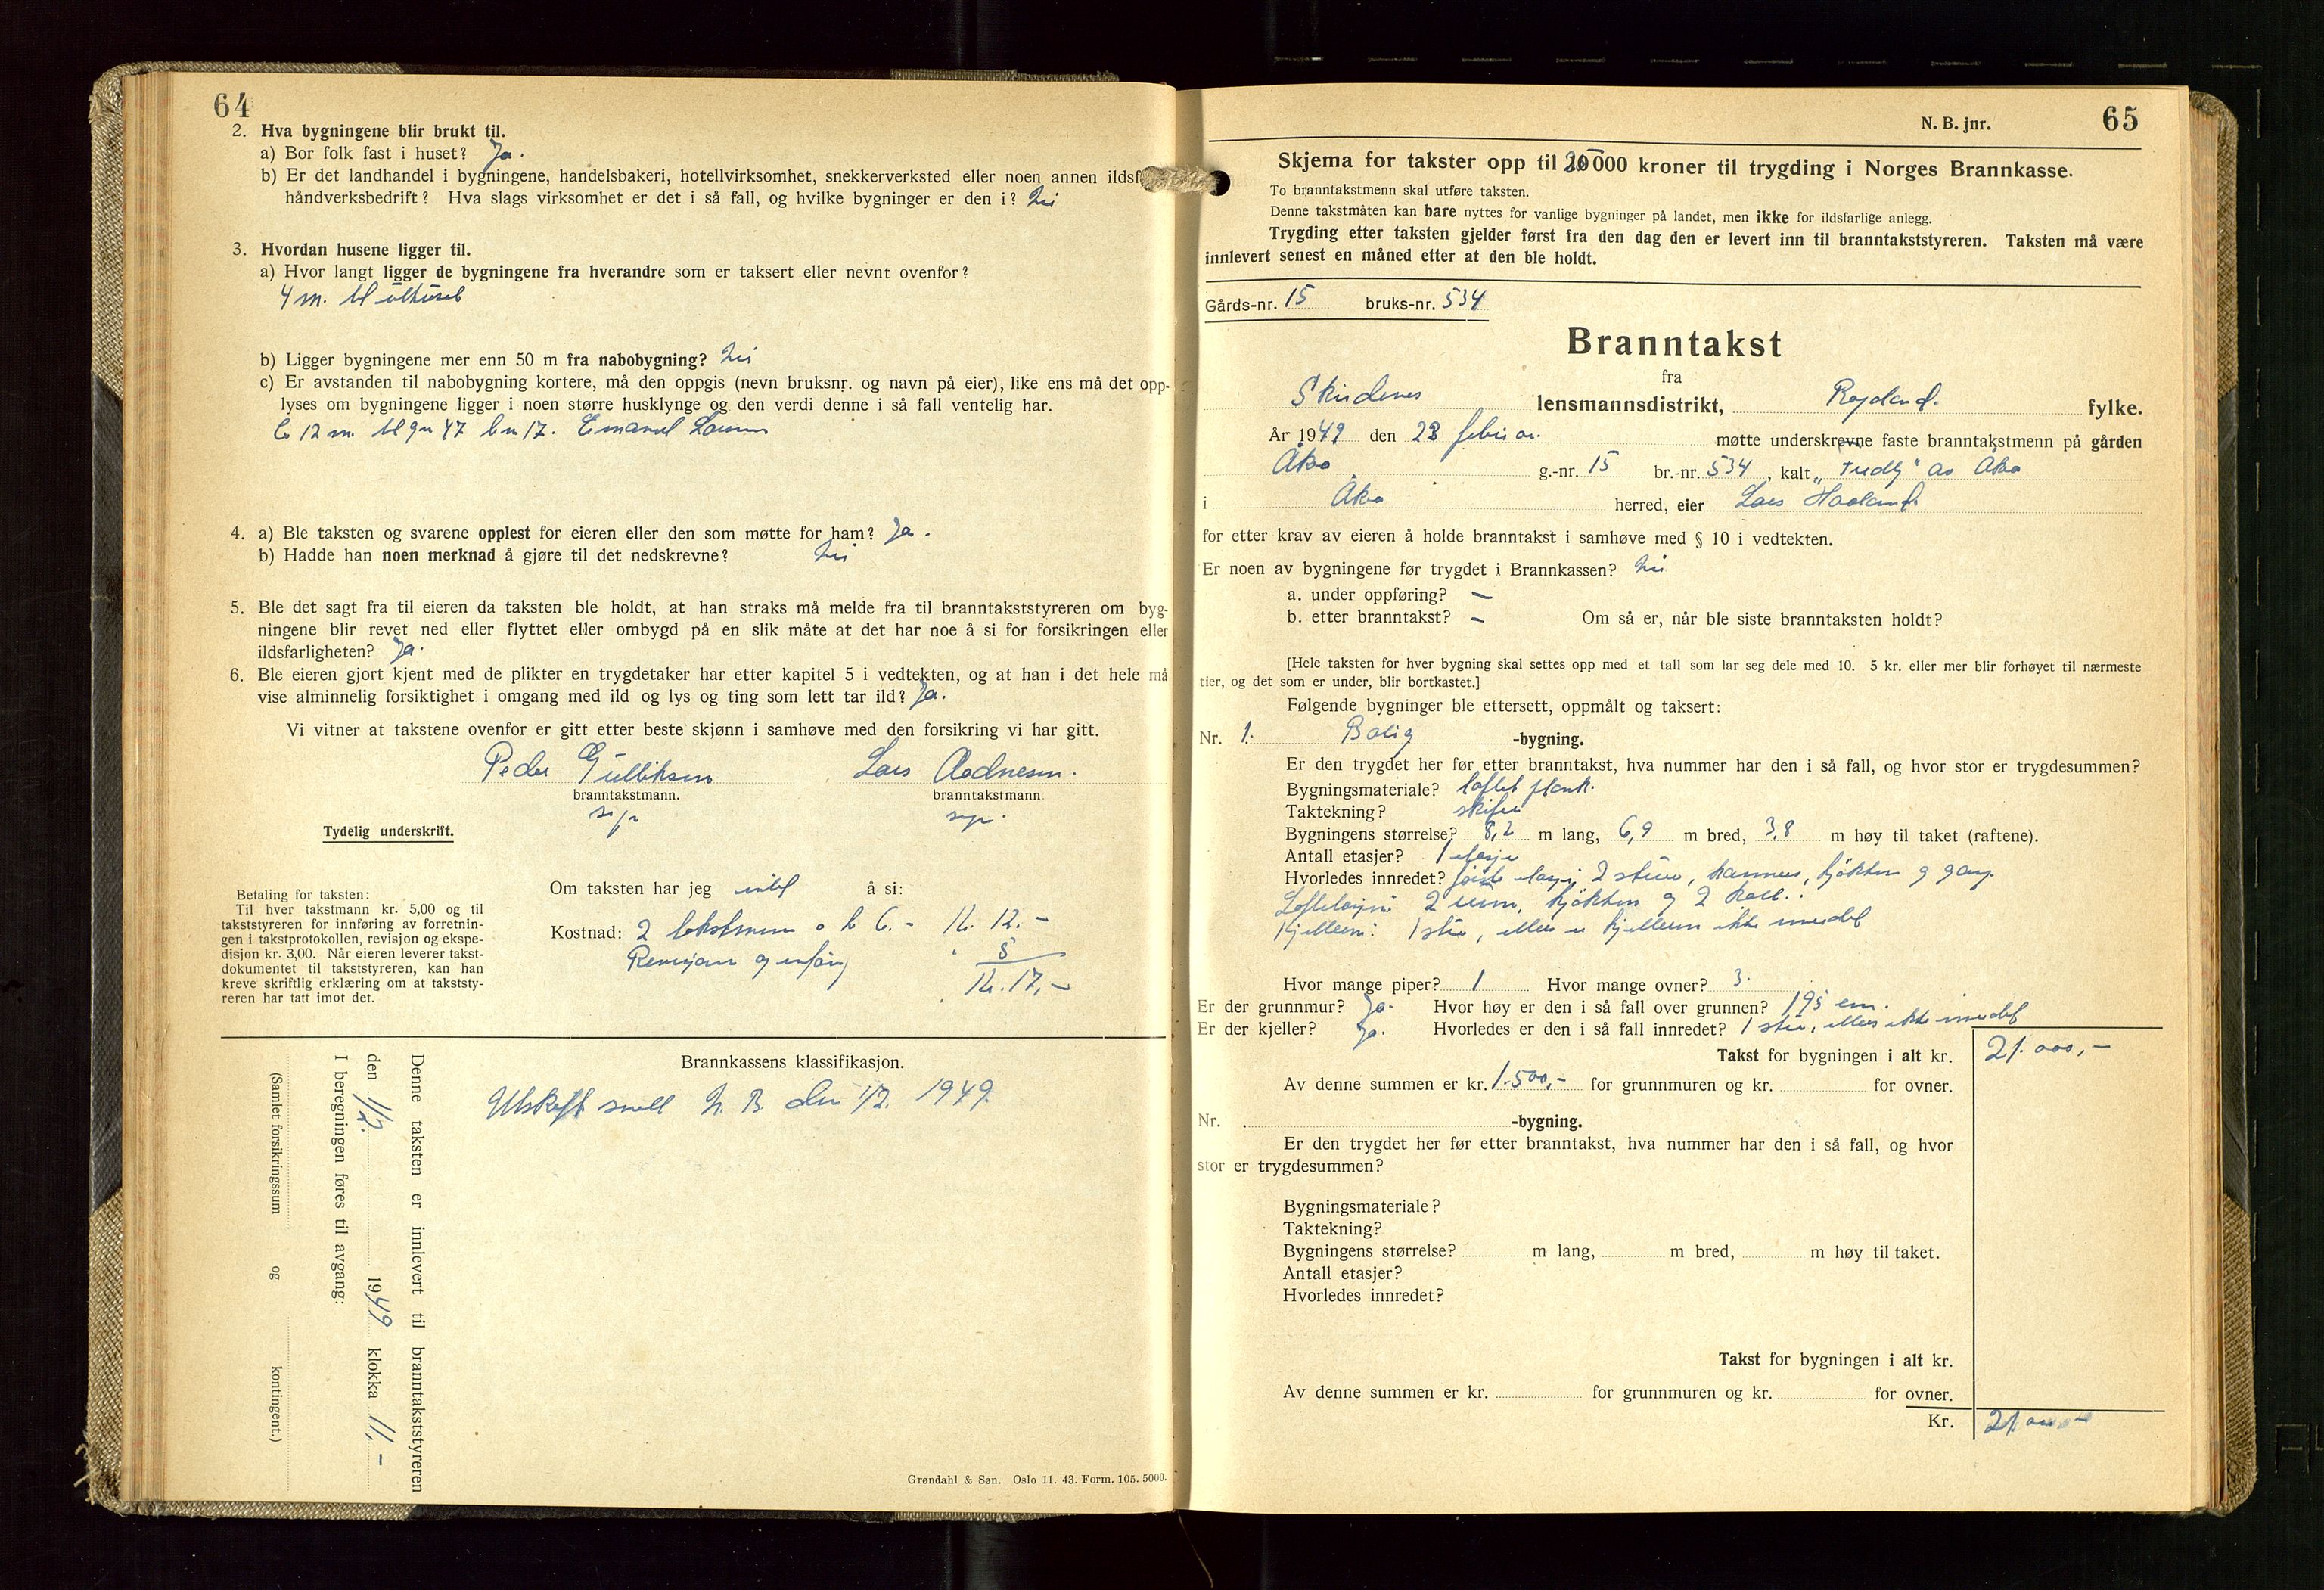 64
2. Hva bygningene blir brukt til.
a) Bor folk fast i huset? Ja.
b) Er det landhandel i bygningene, handelsbakeri, hotellvirksomhet, snekkerverksted eller noen annen ildsf
håndverksbedrift? Hva slags virksomhet er det i så fall, og hvilke bygninger er den i? Nei
3. Hvordan husene ligger til.
a) Hvor langt ligger de bygningene fra hverandre som er taksert eller nevnt ovenfor?
4 m. til uthuset
b) Ligger bygningene mer enn 50 m fra nabobygning? Nei
c) Er avstanden til nabobygning kortere, må den oppgis (nevn bruksnr. og navn på eier), like ens må det opp-
lyses om bygningene ligger i noen større husklynge og den verdi denne i så fall ventelig har.
Ca 12 m til gnr 47 bnr 17. Emanuel Larsen
4. a) Ble taksten og svarene opplest for eieren eller den som møtte for ham? Ja.
b) Hadde han noen merknad å gjøre til det nedskrevne? Nei
5. Ble det sagt fra til eieren da taksten ble holdt, at han straks må melde fra til branntakststyreren om byg-
ningene blir revet ned eller flyttet eller ombygd på en slik måte at det har noe å si for forsikringen eller
ildsfarligheten? Ja.
6. Ble eieren gjort kjent med de plikter en trygdetaker har etter kapitel 5 i vedtekten, og at han i det hele må
vise alminnelig forsiktighet i omgang med ild og lys og ting som lett tar ild? Ja.
Vi vitner at takstene ovenfor er gitt etter beste skjønn i samhøve med den forsikring vi har gitt.
Peder Gulliksen Lars Aadnesen.
branntakstmann. branntakstmann.
sign sign.
Tydelig underskrift.
Betaling for taksten:
Til hver takstmann kr. 5,00 og til
takststyreren for innføring av forretnin-
gen i takstprotokollen, revisjon og ekspe-
disjon kr. 3,00. Når eieren leverer takst-
dokumentet til takststyreren, kan han
kreve skriftlig erklæring om at takststy-
reren har tatt imot det.
Om taksten har jeg intet å si:
Kostnad: 2 takstmenn a kr 6.- Kr. 12.-
Revisjon og innføring " 5
Kr. 17,-
Brannkassens klassifikasjon.
Utskrift sendt N. B. den 1/2. 1949.
Denne taksten er innlevert til branntakststyreren
den 1/2. 1949 klokka 11,-
I beregningen føres til avgang:
(Samlet forsikringssum og kontingent.)
Grøndahl & Søn. Oslo 11. 43. Form. 105. 5000.
N. B. jnr. 65
Skjema for takster opp til 20000 kroner til trygding i Norges Brannkasse.
To branntakstmenn skal utføre taksten.
Denne takstmåten kan bare nyttes for vanlige bygninger på landet, men ikke for ildsfarlige anlegg.
Trygding etter taksten gjelder først fra den dag den er levert inn til branntakststyreren. Taksten må være
innlevert senest en måned etter at den ble holdt.
Gårds-nr. 15 bruks-nr. 534
Branntakst
fra
Skudenes lensmannsdistrikt, Rogaland. fylke.
År 1949 den 28 februar. møtte underskrevne faste branntakstmenn på gården
Åkra g.-nr. 15 br.-nr. 534, kalt „Fredly" av Åkra
i Åkra herred, eier Lars Haaland
for etter krav av eieren å holde branntakst i samhøve med § 10 i vedtekten.
Er noen av bygningene før trygdet i Brannkassen? Nei
a. under oppføring? —
b. etter branntakst? — Om så er, når ble siste branntaksten holdt?
[Hele taksten for hver bygning skal settes opp med et tall som lar seg dele med 10. 5 kr. eller mer blir forhøyet til nærmeste
tier, og det som er under, blir bortkastet.]
Følgende bygninger ble ettersett, oppmålt og taksert:
Nr. 1. Bolig -bygning.
Er den trygdet her før etter branntakst, hva nummer har den i så fall, og hvor stor er trygdesummen?
Bygningsmateriale? laftet plank.
Taktekning? skifer
Bygningens størrelse? 8,2 m lang, 6,9 m bred, 3,8 m høy til taket (raftene).
Antall etasjer? 1 etasje
Hvorledes innredet? første etasje; 2 stuer, kammers, kjøkken og gang.
Loftetasjen: 2 rum, kjøkken og 2 kott.
Kjelleren: 1 stue, ellers er kjelleren ikke innredet
Hvor mange piper? 1 Hvor mange ovner? 3.
Er der grunnmur? Ja. Hvor høy er den i så fall over grunnen? 195 cm.
Er der kjeller? Ja. Hvorledes er den i så fall innredet? 1 stue, ellers ikke innredet
Takst for bygningen i alt kr. 21.000,-
Av denne summen er kr. 1.500,- for grunnmuren og kr. for ovner.
Nr. -bygning.
Er den trygdet her før etter branntakst, hva nummer har den i så fall, og hvor
stor er trygdesummen?
Bygningsmateriale?
Taktekning?
Bygningens størrelse? m lang, m bred, m høy til taket.
Antall etasjer?
Hvorledes innredet?
Takst for bygningen i alt kr.
Av denne summen er kr. for grunnmuren og kr. for ovner.
Kr. 21.000,-